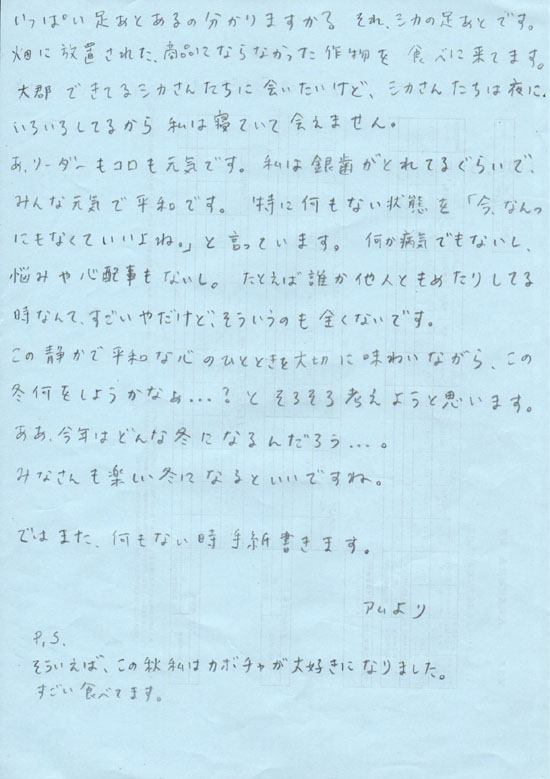 いっぱい足あとあるの分かりますか? それ、シカの足あとです。
畑に放置された、商品にならなかった作物を 食べに来てます。
大群できてるシカさんたちに会いたいけど、シカさんたちは夜に、
いろいろしてるから私は寝ていて会えません。
あ、リーダーもコロも元気です。私は銀歯がとれてるぐらいで、
みんな元気で平和です。 特に何もない状態を「今、なんっ
にもなくていいよね。」と言っています。 何か病気でもないし、
悩みや心配事もないし。 たとえば誰か他人ともめたりしてる
時なんて、すごいやだけど、そういうのも全くないです。
この静かで平和な心のひとときを大切に味わいながら、この
冬何をしようかなぁ...? と そろそろ考えようと思います。
ああ、今年はどんな冬になるんだろう...。
みなさんも楽しい冬になるといいですね。
ではまた、何もない時手紙書きます。
アムより
P.S.
そういえば、この秋私はカボチャが大好きになりました。
すごい食べてます。